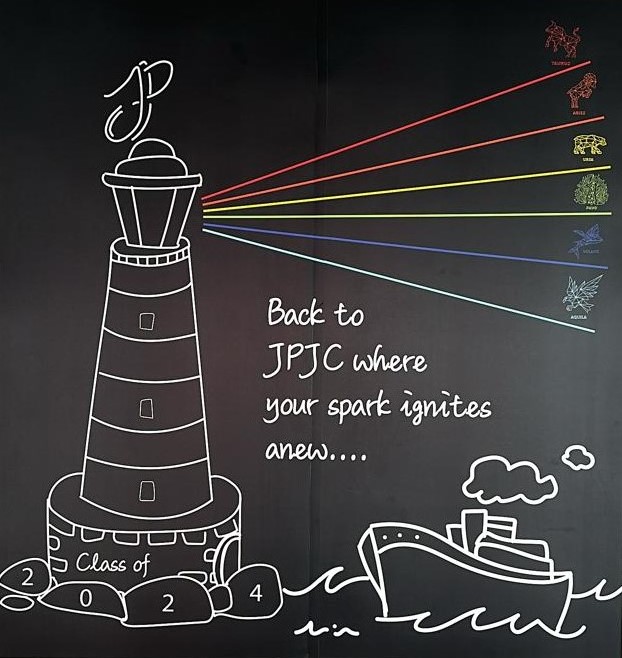 JP
TAURUS
ARIES
URSA
PAVO
VOLANS
AQUILA
Back to
JPJC where
your spark ignites
anew....
Class of
2 0 2 4